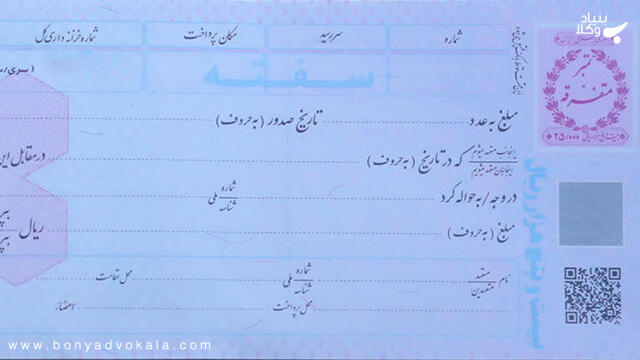 بنیاد وکلا
شماره
سررسید
مکان پرداخت
شماره خزانه داری کل
سفته
تمبر
متفرقه
۲۵/۰۰۰
مبلغ به عدد
تاریخ صدور (به حروف)
اینجانب متعهد میشوم
اینجانبان متعهد میشویم
که در تاریخ (به حروف)
در مقابل این
در وجه / به حواله کرد
شماره
شناسه
ملی
مبلغ (به حروف)
ریال
بیست و پنج هزار ریال
نام
متعهد
متعهدین
شماره
شناسه
ملی
محل اقامت
محل پرداخت
امضاء
www.bonyadvokala.com